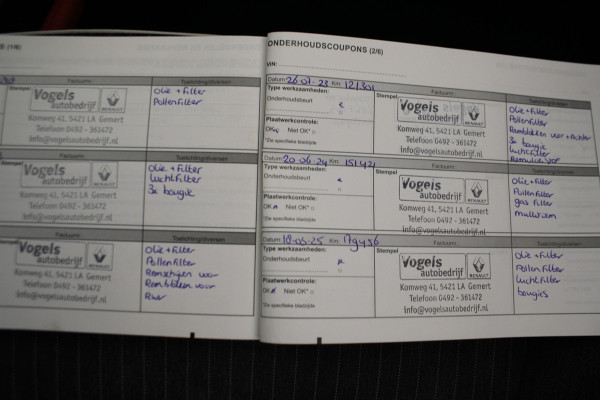 S (1/6)
Factuurnr.:
Toelichting/diversen
Stempel
Vogels
autobedrijf
RENAULT
Komweg 41, 5421 LA Gemert
Telefoon 0492 - 361472
info@vogelsautobedrijf.nl
Olie + filter
Pollenfilter
Factuurnr.:
Toelichting/diversen
Stempel
Vogels
autobedrijf
RENAULT
Komweg 41, 5421 LA Gemert
Telefoon 0492 - 361472
info@vogelsautobedrijf.nl
Olie + filter
Luchtfilter
3x bougie
Factuurnr.:
Toelichting/diversen
Stempel
Vogels
autobedrijf
RENAULT
Komweg 41, 5421 LA Gemert
Telefoon 0492 - 361472
info@vogelsautobedrijf.nl
Olie + filter
Pollenfilter
Remschijven voor
Remblokken voor
ONDERHOUDSCOUPONS (2/6)
VIN:
Datum: Km: Factuurnr.: Toelichting/diversen
Type werkzaamheden:
Onderhoudsbeurt
Plaatwerkcontrole:
OK Niet OK*
*Zie specifieke bladzijde
Stempel
Vogels
autobedrijf
RENAULT
Komweg 41, 5421 LA Gemert
Telefoon 0492 - 361472
info@vogelsautobedrijf.nl
Olie + filter
Pollenfilter
Remblokken voor + achter
3x bougie
Luchtfilter
Datum: 20 06 24 Km: Factuurnr.: Toelichting/diversen
Type werkzaamheden:
Onderhoudsbeurt
Plaatwerkcontrole:
OK Niet OK*
*Zie specifieke bladzijde
Stempel
Vogels
autobedrijf
RENAULT
Komweg 41, 5421 LA Gemert
Telefoon 0492 - 361472
info@vogelsautobedrijf.nl
Olie + filter
Pollenfilter
gas filter
Datum: Km: Factuurnr.: Toelichting/diversen
Type werkzaamheden:
Onderhoudsbeurt
Plaatwerkcontrole:
OK Niet OK*
*Zie specifieke bladzijde
Stempel
Vogels
autobedrijf
RENAULT
Komweg 41, 5421 LA Gemert
Telefoon 0492 - 361472
info@vogelsautobedrijf.nl
Olie + filter
Pollenfilter
Luchtfilter
bougies